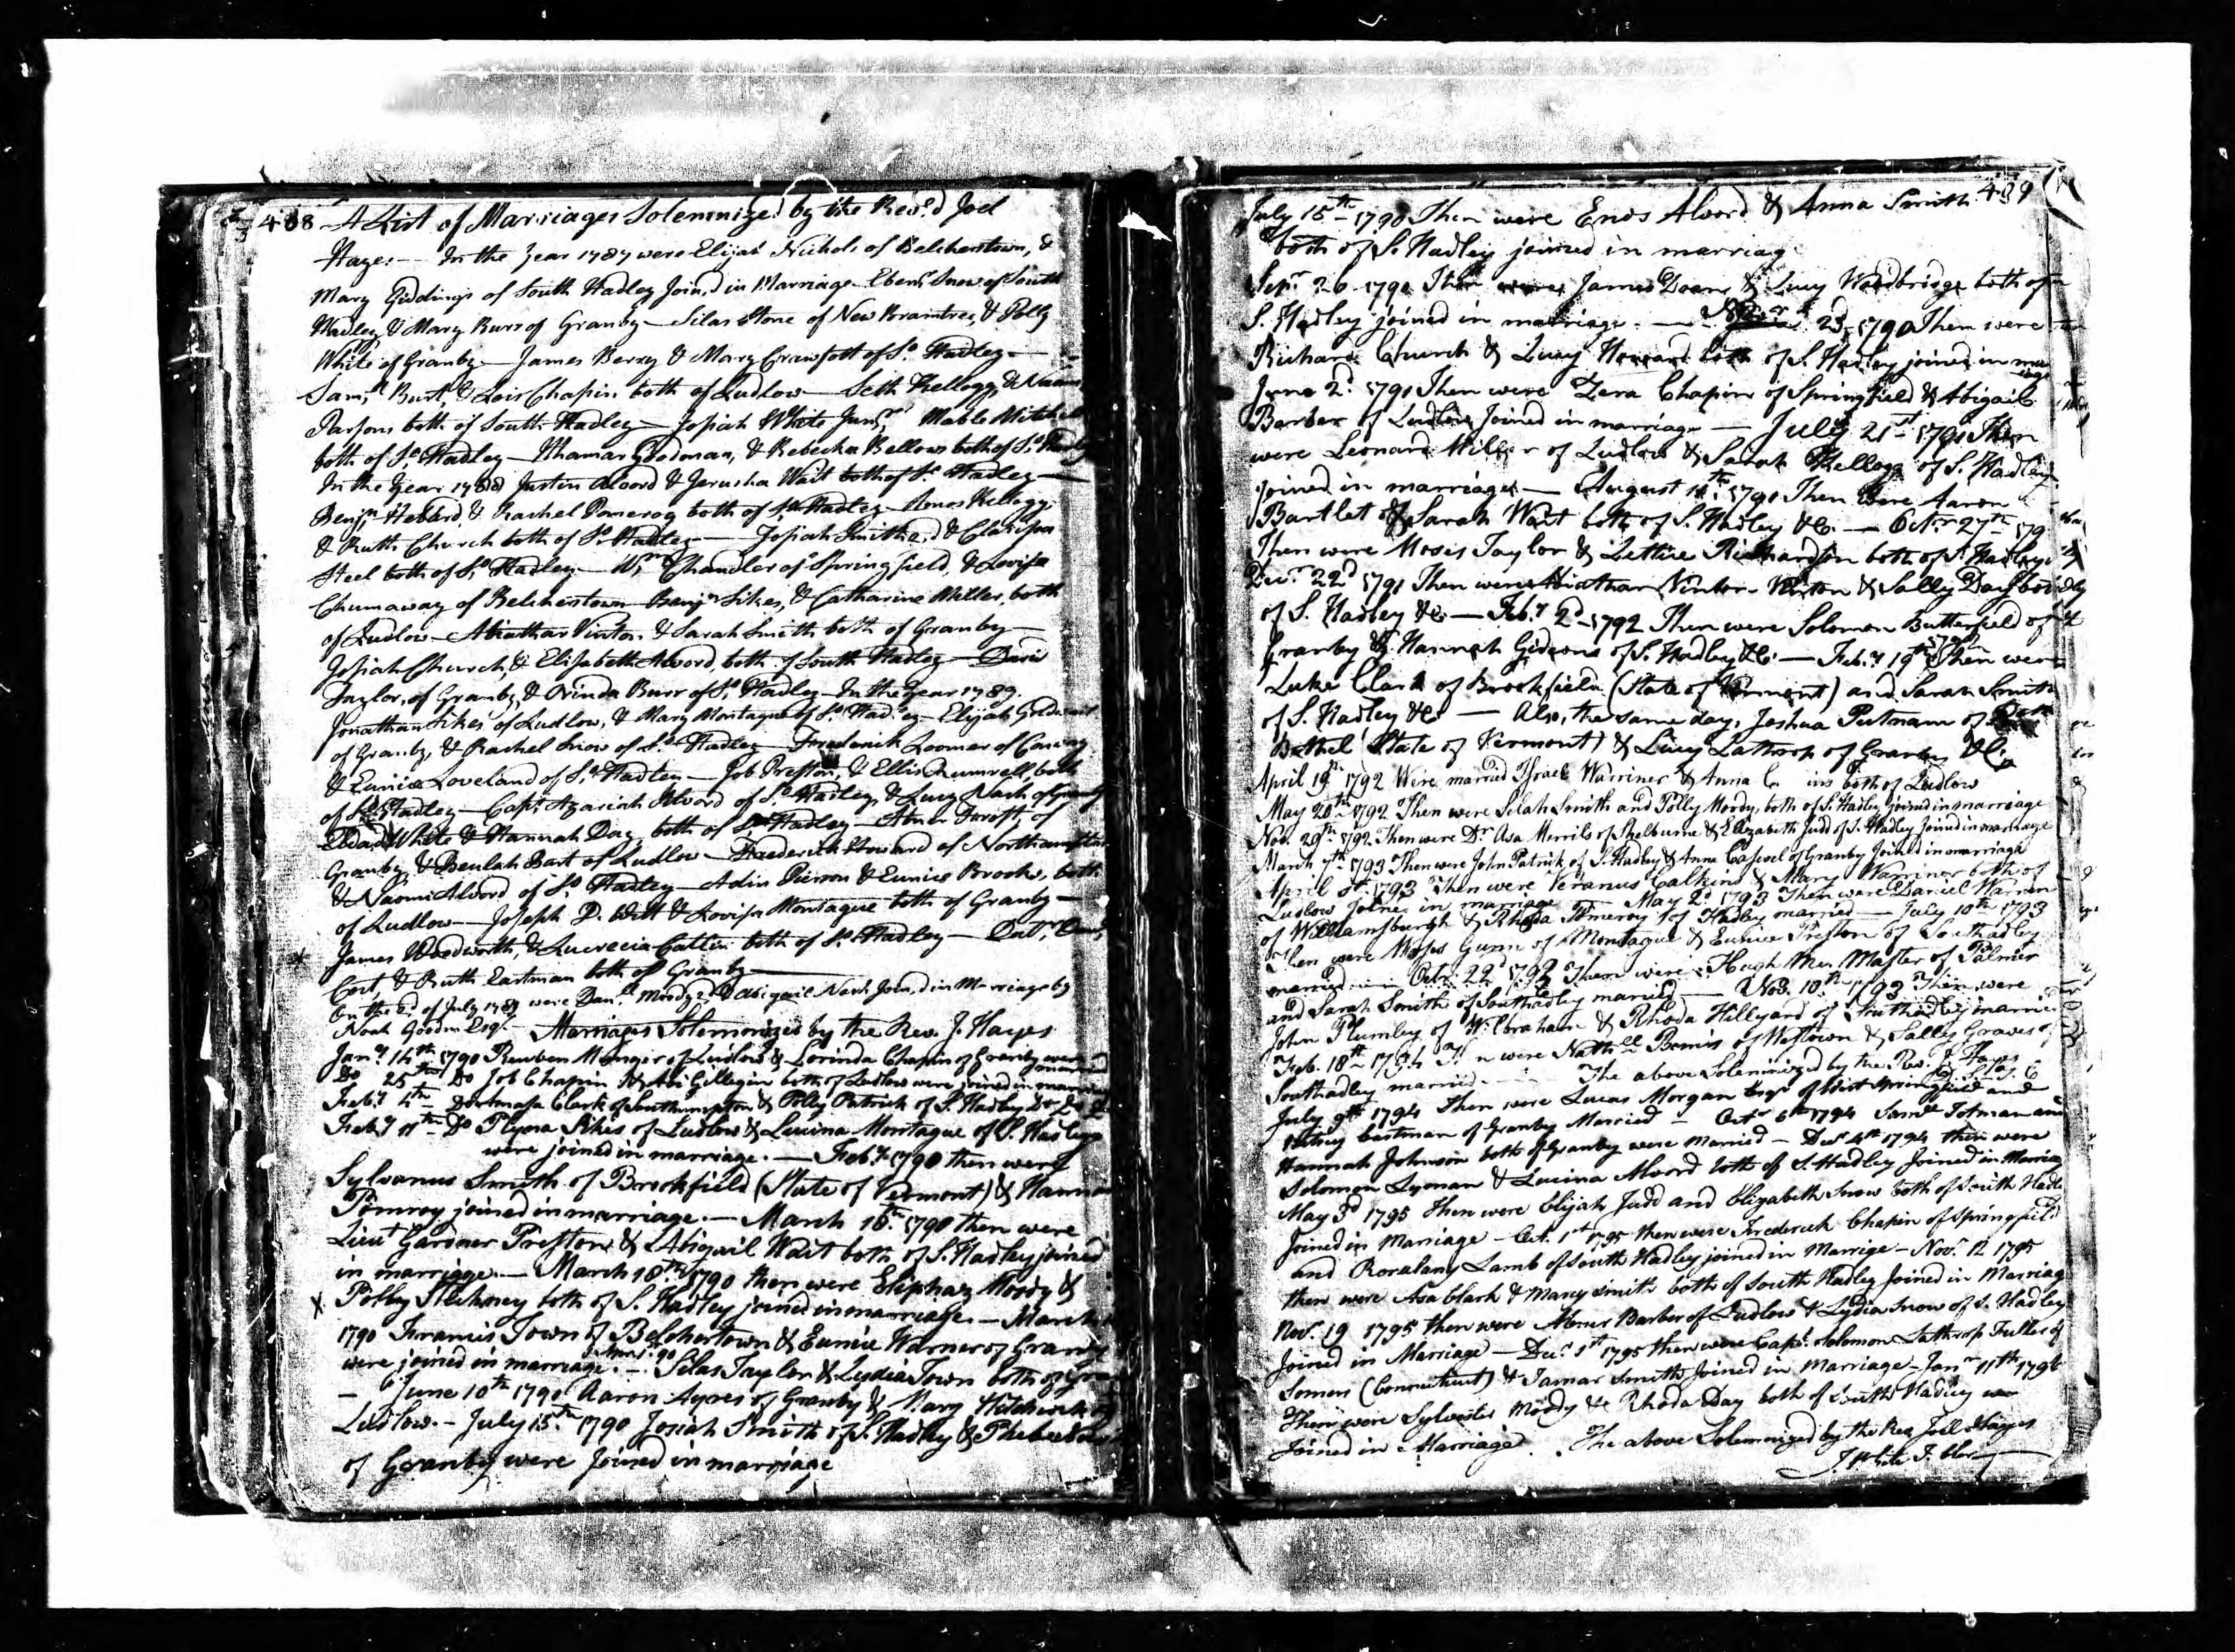 408 A List of Marriages Solemnized by the Rev.d Joel
Hayes -- In the Year 1787 were Elijah Nichols of Belcherstown, &
Mary Giddings of South Hadley Join,d in Marriage Eben.r Snow of South
Hadley, & Mary Burr of Granby - Silas Stone of New Braintree, & Polly
White of Granby - James Berry & Mary Crawfott of S.o Hadley -
Sam,ll Burt, & Lois Chapin both of Ludlow - Seth Kellogg, &
Parsons both of South Hadley - Josiah White Jun.r Mable
both of S.o Hadley - Ithamar Goodman, & Rebecka Bellows both of S.o
In the Year 1788 Justin Alvord & Jerusha Wait both of S.o Hadley -
Benj,n Hebberd, & Rachel Pomeroy both of S.o Hadley - Amos Kellogg
& Ruth Church both of S.o Hadley - Josiah Smith 2,d & Clarissa
Steel both of S.o Hadley - W,m Chandler of Springfield, & Lovisa
Chumaway of Belcherstown - Benj.n Sikes, & Catharine Miller, both
of Ludlow - Abiathar Vinton & Sarah Smith both of Granby -
Josiah Church, & Elisabeth Alvord, both of South Hadley -
Taylor, of Granby, & Orinda Burr of S.o Hadley - In the Year 1789.
Jonathan Sikes of Ludlow, & Mary Montague of S.o Hadley - Elijah
of Granby, & Rachel Snow of S.o Hadley - Frederick Loomer of
& Eunice Loveland of S.o Hadley - Job Preston, & Ellis Rumrell, both
of S.o Hadley - Capt. Azariah Alvord of S.o Hadley, & Lucy Nash of Granby
White & Hannah Day both of S.o Hadley - Abner of
Granby, & Beulah Bart of Ludlow - Frederick Howard of Northampton
& Naomi Alvord of S.o Hadley - Adin Pierson & Eunice Brooks, both
of Ludlow - Joseph D. Witt & Lovisa Montague both of Granby -
James Woodworth, & Lucrecia Catlin both of S.o Hadley -
& Ruth Eastman both of Granby
On the 2.d of July 1789 were Dan.l Moody 2.d & Abigail Nash Join,d in Marriage by
Noah Goodm Esq.r - Marriages Solemnized by the Rev. J. Hayes
Jan.y 14th 1790 Reuben Munger of Ludlow & Lorinda Chapin of Granby were
Do 25th Do Job Chapin & Gilligin both of Ludlow were joined in
Feb.y 4th - Clark of Southampton & Polly Patrick of S. Hadley Do Do
Feb.y 11th Do Plyna Sikes of Ludlow & Lucina Montague of S. Hadley
were joined in marriage. - Feb.y 1790 then were
Sylvanus Smith of Brookfield (State of Vermont) &
Pomroy joined in marriage. - March 18th 1790 then were
Lieut Gardner Preston & Abigail Wait both of S. Hadley joined
in marriage. - March 18th 1790 then were Eliphaz Moody &
X Polly Stickney both of S. Hadley joined in marriage. - March
1790 Francis Town of Belchertown & Eunice Warner of Granby
were joined in marriage. - Silas Taylor & Lydia Town both of
- June 10th 1790 Aaron Ayres of Granby & Mary Hitchcock
Ludlow. - July 15th 1790 Josiah Smith of S. Hadley & Phebe
of Granby were Joined in marriage
July 15th - 1790 Then were Enos Alvord & Anna Smith 409
both of S. Hadley joined in marriag
Sepr 26 - 1790 Then were James Doane & Lucy Woodbridge both of
S. Hadley joined in marriage. - 23 - 1790 Then were
Richard Church & Lucy Howard both of S. Hadley joined in
June 2d 1791 Then were Zera Chapin of Springfield & Abigail
Barber of Ludlow Joined in marriage - July 21st - 1791 Then
were Leonard Miller of Ludlow & Sarah Kellogg of S. Hadley
joined in marriage - August 1790 Then were Aaron
Bartlet & Sarah Wait both of S. Hadley &c. - Oct.r 27th 179
Then were Moses Taylor & Lettice Richardson both of S. Hadley
Dec.r 22d 1791 Then were Abiathar Vinton & Sally Day
of S. Hadley &c - Feb.y 2d - 1792 Then were Solomon Butterfield of
Granby & Hannah Gideons of S. Hadley &c. - Feb.y 19th 1792 Then were
Luke Clark of Brookfield (State of Vermont) and Sarah Smith
of S. Hadley &c - Also, the same day, Joshua Putnam of
Bethel (State of Vermont) & Lucy Lathrop of Granby &c.
April 19th 1792 Were married Israel Warriner & Anna both of Ludlow
May 20th 1792 Then were Selah Smith and Polly Moody, both of S. Hadley joined in marriage
Nov. 29th 1792 Then were Dr Asa Merrils of Shelburne & Elizabeth Judd of S. Hadley Joined in marriage
March 7th 1793 Then were John Patrick of S. Hadley & Anna Caswel of Granby Joined in marriage
April 1793 Then were Veranus Calkins & Mary Warriner both of
Ludlow Joined in marriage - May 2d 1793 Then were Daniel Warren
of Williamsburgh & Rhoda Pomeroy of Hadley married - July 10th 1793
Then were Moses Gunn of Montague & Eunice Preston of Southadley
married - Octr. 22d 1792 Then were Hugh Mc Master of Palmer
and Sarah Smith of Southadley married - Nov. 10th 1793 Then were
John Plumley of Wilbraham & Rhoda Hillyard of Southadley married
Feb. 18th - 1794 Then were Nath.ll Bemis of Westown & Sally Graves of
Southadley married. - The above Solemnized by the Rev. J. Hayes
July 9th 1794 then were Lucas Morgan Esqr of West Springfield and
Eastman of Granby Married - Octr 6th 1794 Saml Totman and
Hannah Johnson both of Granby were married - Decr 4th 1794 then were
Solomon Lyman & Lucina Alvord both of S. Hadley Joined in Marriag
May 3d 1795 then were Elijah Judd and Elizabeth Snow both of South Hadle
Joined in Marriage - Oct. 1st 1795 then were Frederick Chapin of Springfield
and Roxalany Lamb of South Hadley joined in Marrige - Nov. 12 1795
then were Asa Clark & Mary Smith both of South Hadley Joined in Marriag
Nov. 19 1795 then were Abner Barber of Ludlow & Lydia Snow of S. Hadley
Joined in Marriage - Decr 1st 1795 then were Capt. Solomon Lathrop Fuller of
Somers (Connecticut) & Tamar Smith Joined in Marriage - Janr 11th 1796
Then were Sylvester Moody & Rhoda Day both of South Hadley
Joined in Marriage. The above Solemnized by the Rev Joel Hayes
J. White T. Cler